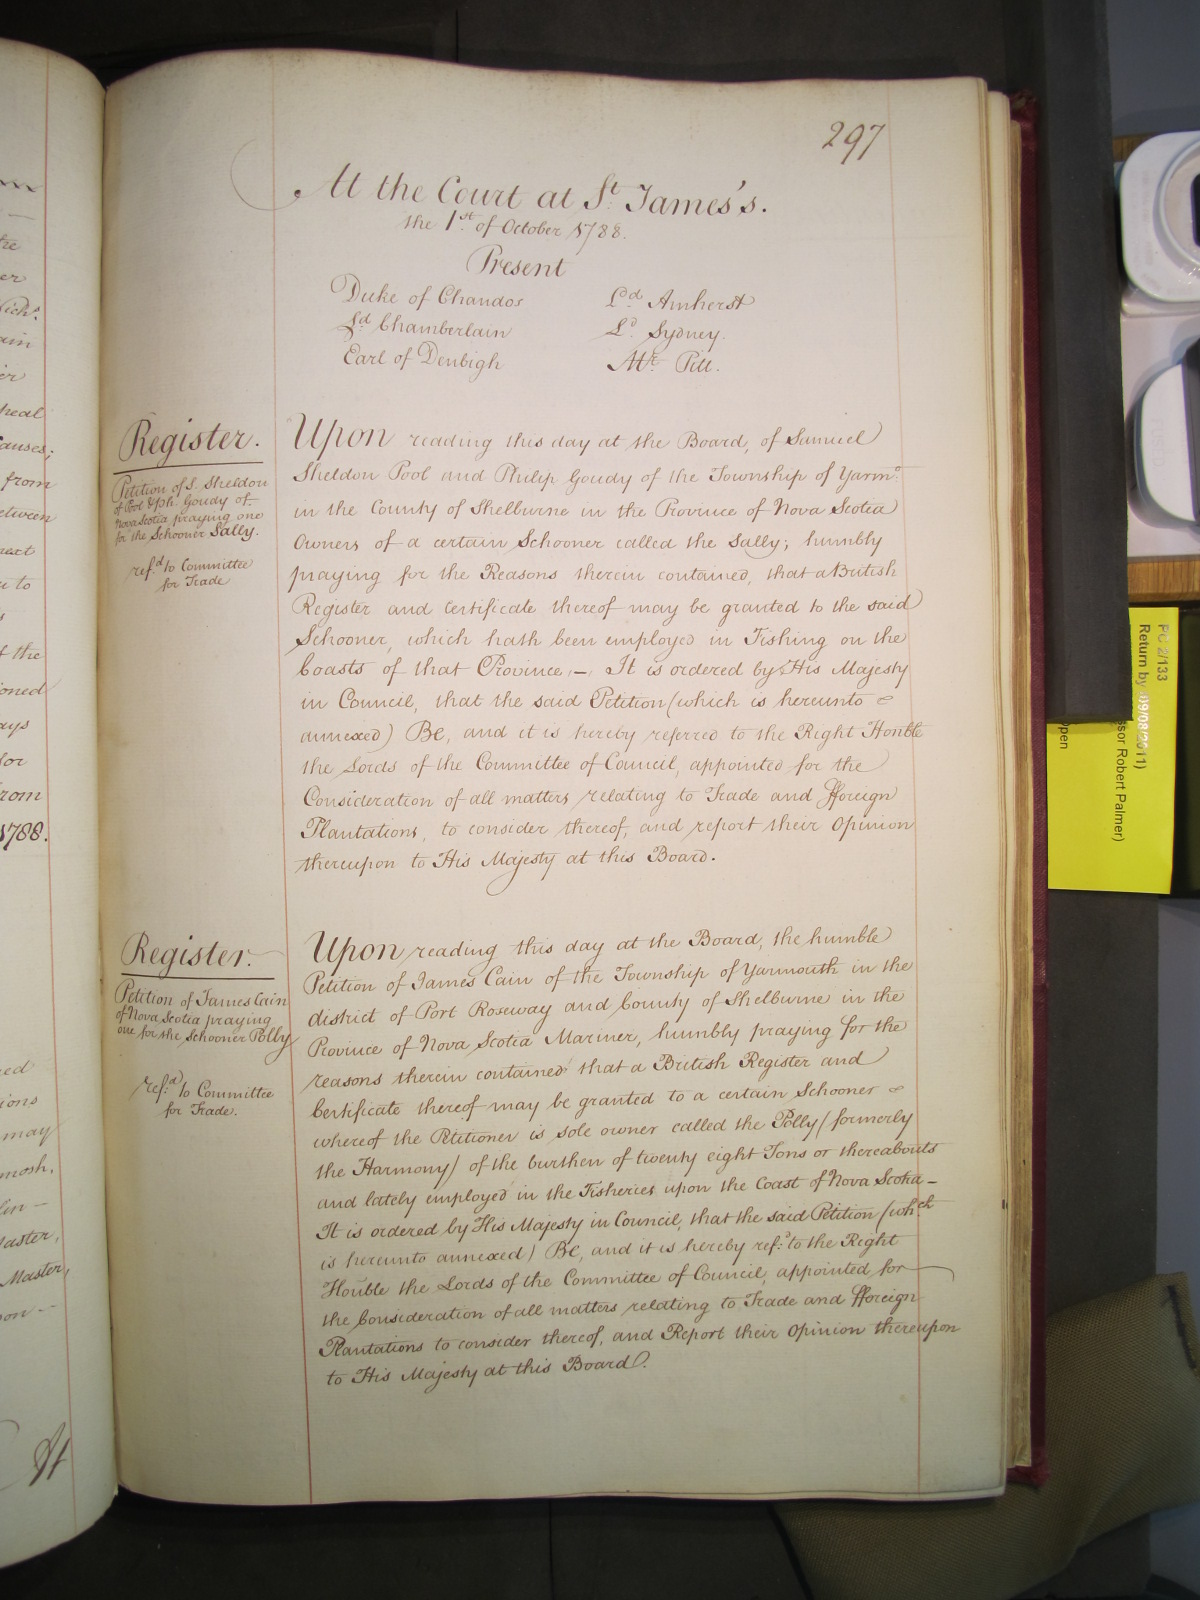 297
At the Court at St. James's.
the 1st. of October 1788.
Present
Duke of Chandos
Ld Chamberlain
Earl of Denbigh
Lod. Amherst
Ld. Sydney.
Mr. Pitt.
Register.
Petition of S. Sheldon
of Pool & Ph. Goudy of
Nova Scotia praying one
for the Schooner Sally.
ref.d to Committee
for Trade
Upon reading this day at the Board, of Samuel
Sheldon Pool and Philip Goudy of the Township of Yarmo.
in the County of Shelburne in the Province of Nova Scotia
Owners of a certain Schooner called the Sally; humbly
praying for the Reasons therein contained, that a British
Register and Certificate thereof may be granted to the said
Schooner, which hath been employed in Fishing on the
Coasts of that Province, — It is ordered by His Majesty
in Council, that the said Petition (which is hereunto
annexed) Be, and it is hereby referred to the Right Honble
the Lords of the Committee of Council, appointed for the
Consideration of all matters relating to Trade and fforeign
Plantations, to consider thereof, and report their Opinion
thereupon to His Majesty at this Board.
Register.
Petition of James Cain
of Nova Scotia praying
one for the Schooner Polly
ref.d to Committee
for Trade.
Upon reading this day at the Board, the humble
Petition of James Cain of the Township of Yarmouth in the
district of Port Roseway and County of Shelburne in the
Province of Nova Scotia Mariner, humbly praying for the
reasons therein contained that a British Register and
Certificate thereof may be granted to a certain Schooner
whereof the Petitioner is sole owner called the Polly (formerly
the Harmony) of the burthen of twenty eight Tons or thereabouts
and lately employed in the Fisheries upon the Coast of Nova Scotia —
It is ordered by His Majesty in Council, that the said Petition (whch
is hereunto annexed) Be, and it is hereby ref.d to the Right
Honble the Lords of the Committee of Council, appointed for
the Consideration of all matters relating to Trade and fforeign
Plantations to consider thereof, and Report their Opinion thereupon
to His Majesty at this Board.
PC 2/133
Return by (09/08/2011)
ssor Robert Palmer)
open
from
1788.
may
Master,
Master,